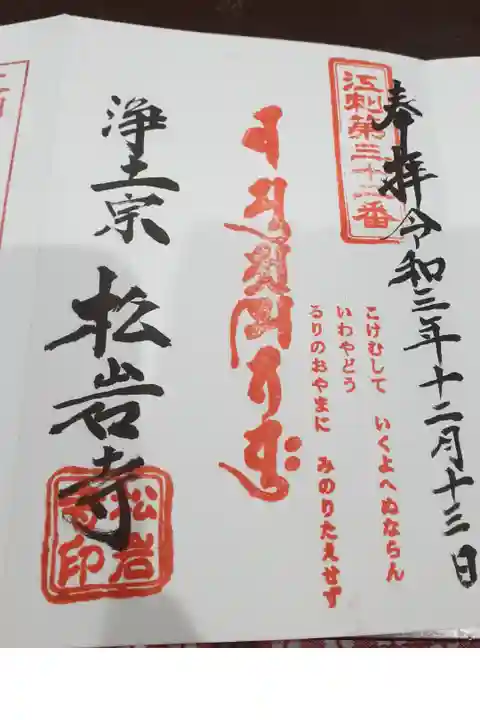 奉拝
令和三年十二月十三日
江刺第三十二番
こけむして　いくよへぬならん
いわやどう
るりのおやまに　みのりたえせず
浄土宗　松岩寺
松岩寺印